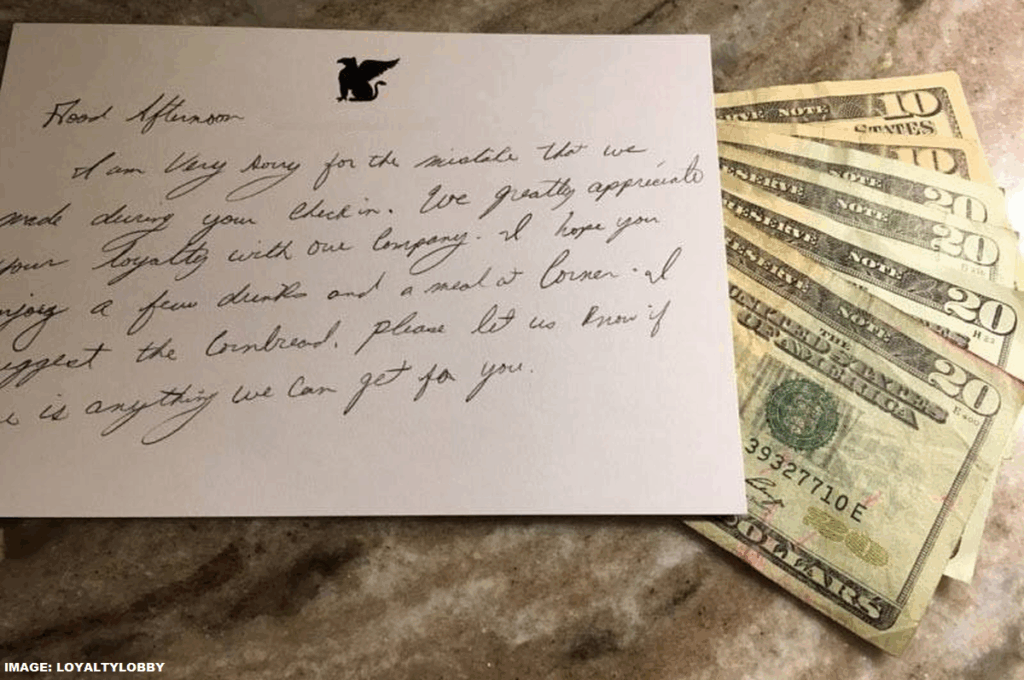 Good Afternoon
I am Very Sorry for the mistake that we
made during your Check in. We greatly appreciate
your loyalty with our Company. I hope you
enjoy a few drinks and a meal at Corner. I
uggest the Cornbread. please let us know if
is anything we can get for you.
RVE NOTE 10
STATES
10
ESERVE NOTE 20
ESERVE NOTE 20
RESERVE NOTE 20
ESERVE NOTE 20
UNITED STATES
THE
OF AMERICA
E 400
39327710E
20
DOLLARS
IMAGE: LOYALTYLOBBY